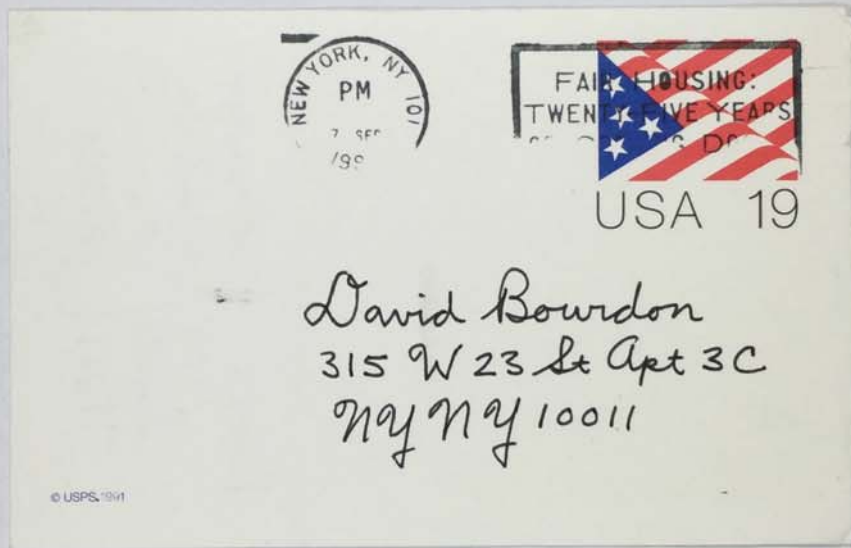 NEW YORK, NY 101
PM
7 SEP
199
FAIR HOUSING:
TWENTY-FIVE YEARS
USA 19
David Bourdon
315 W 23 St Apt 3C
NY NY 10011
© USPS 1991